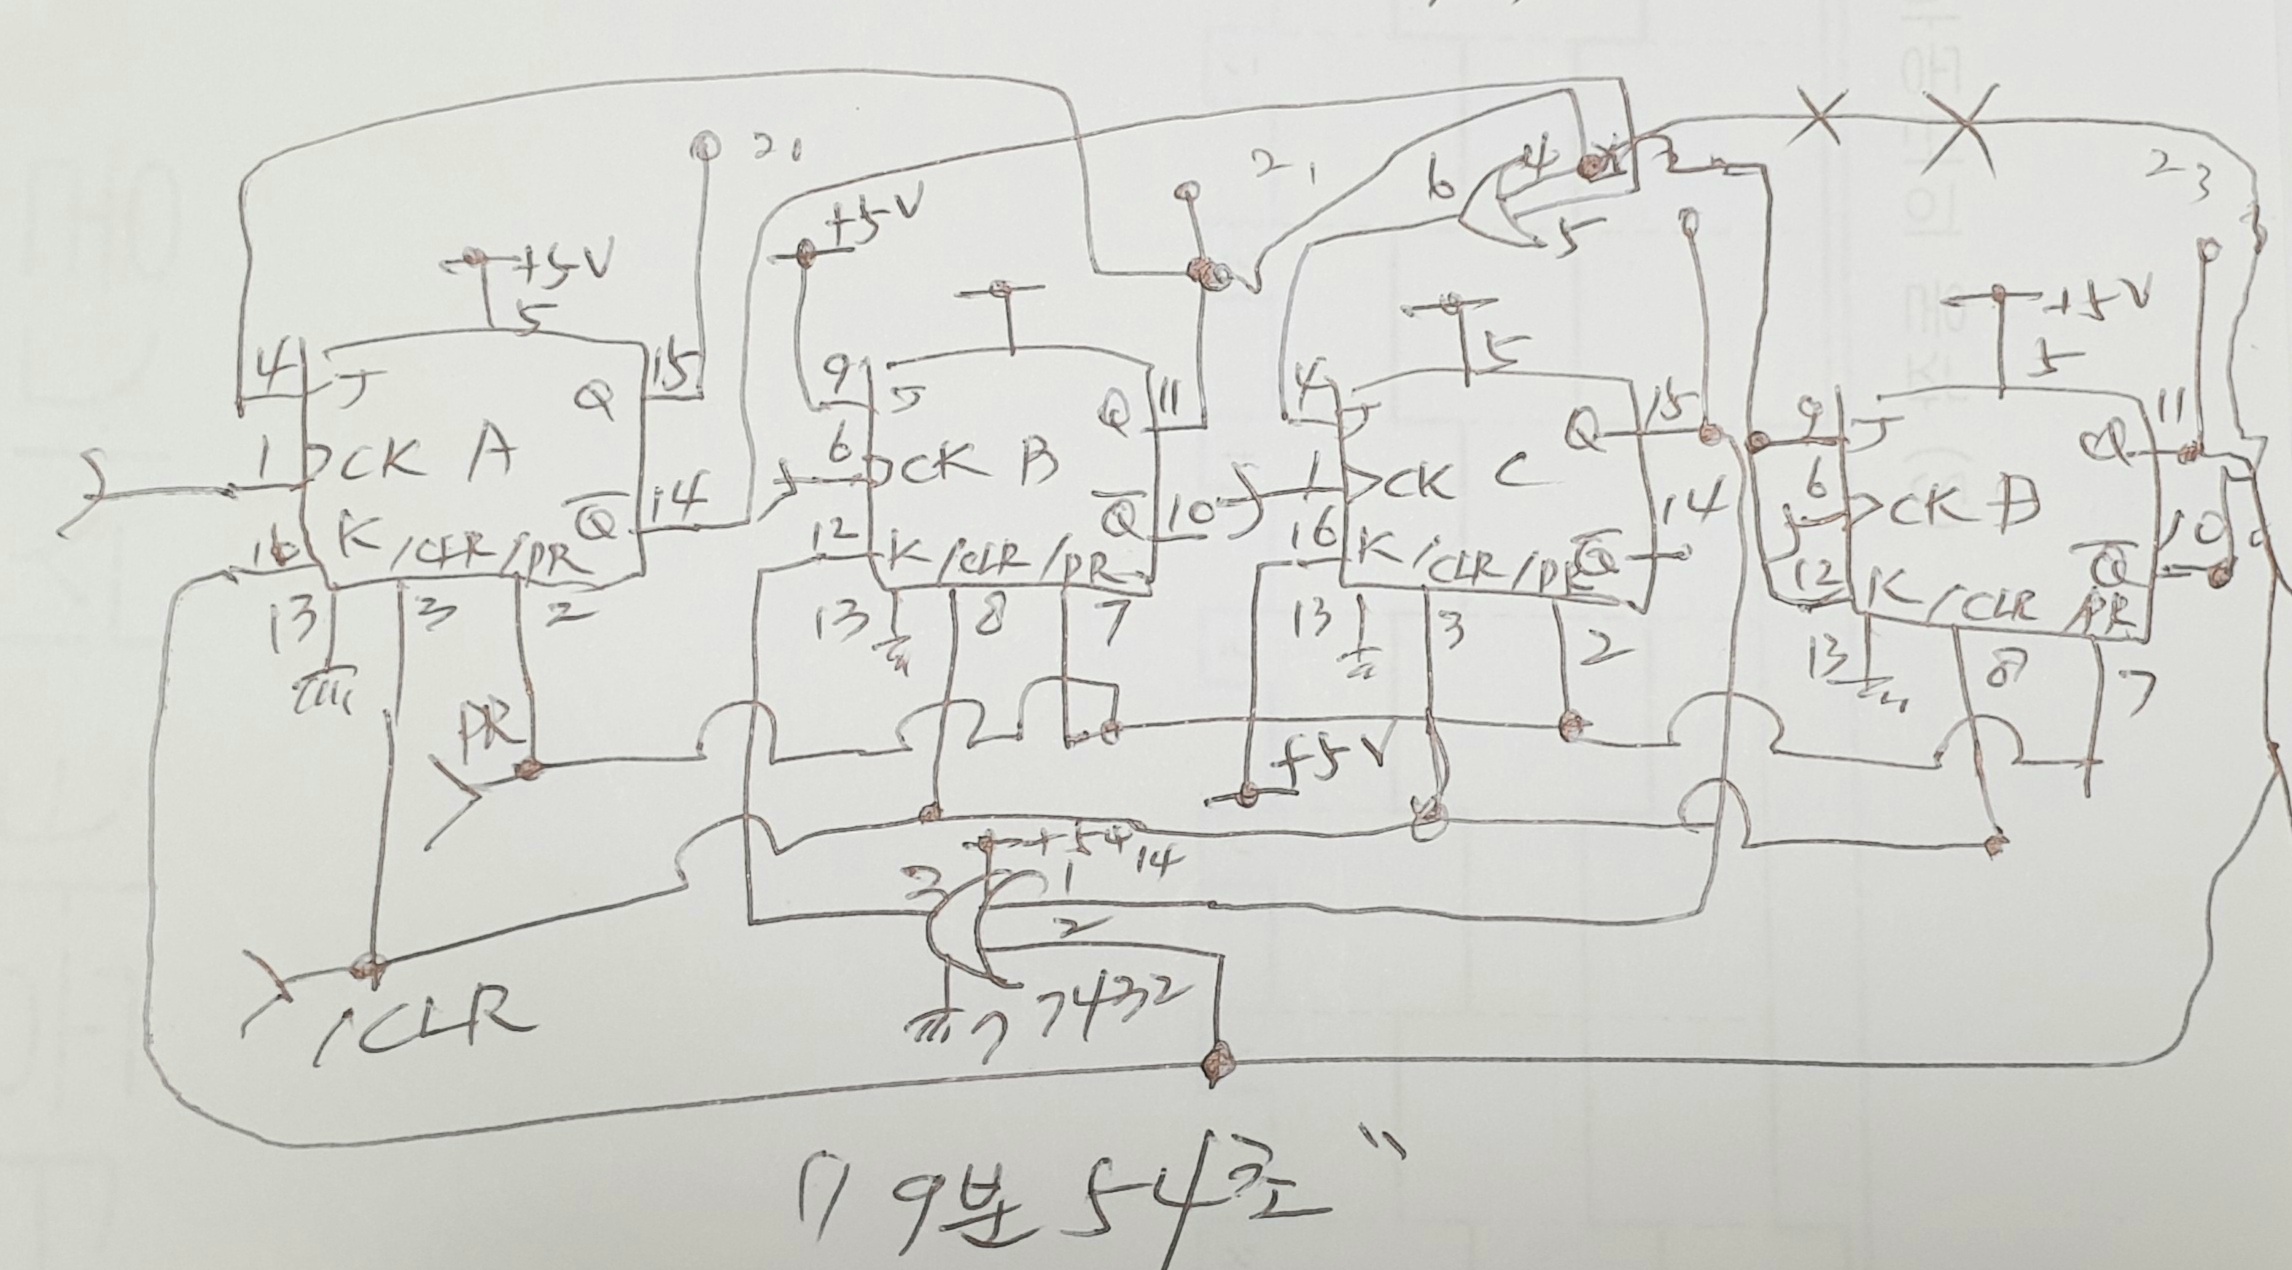 2,
+5V
5
4 J Q 15
1 CK A
16 K /CLR /PR Q 14
13 3 2
PR
/CLR
+5V
2,
9 J Q 11
6 CK B
12 K /CLR /PR Q 10
13 8 7
6 4
5
5
4 J Q 15
1 CK C
16 K /CLR /PR Q 14
13 3 2
+5V
23
+5V
5
9 J Q 11
6 CK
12 K /CLR /PR Q 10
13 8 7
14
3 1
2
7 7432
9분 54초"